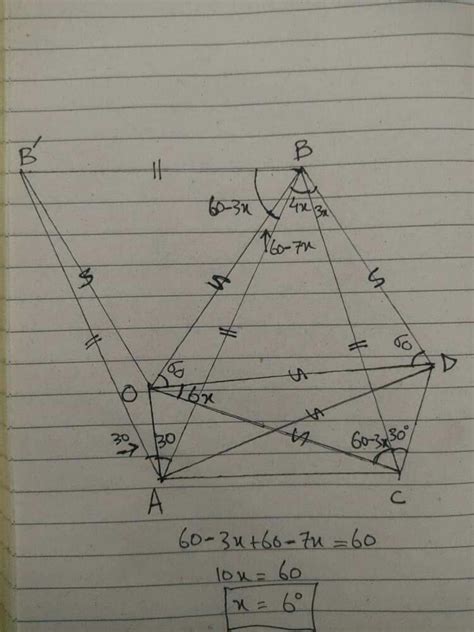 B′
B
60-3x
4x
3x
60-7x
60
60
D
O
6x
30
30
60-3x
30°
A
C
60-3x+60-7x=60
10x = 60
x = 6°